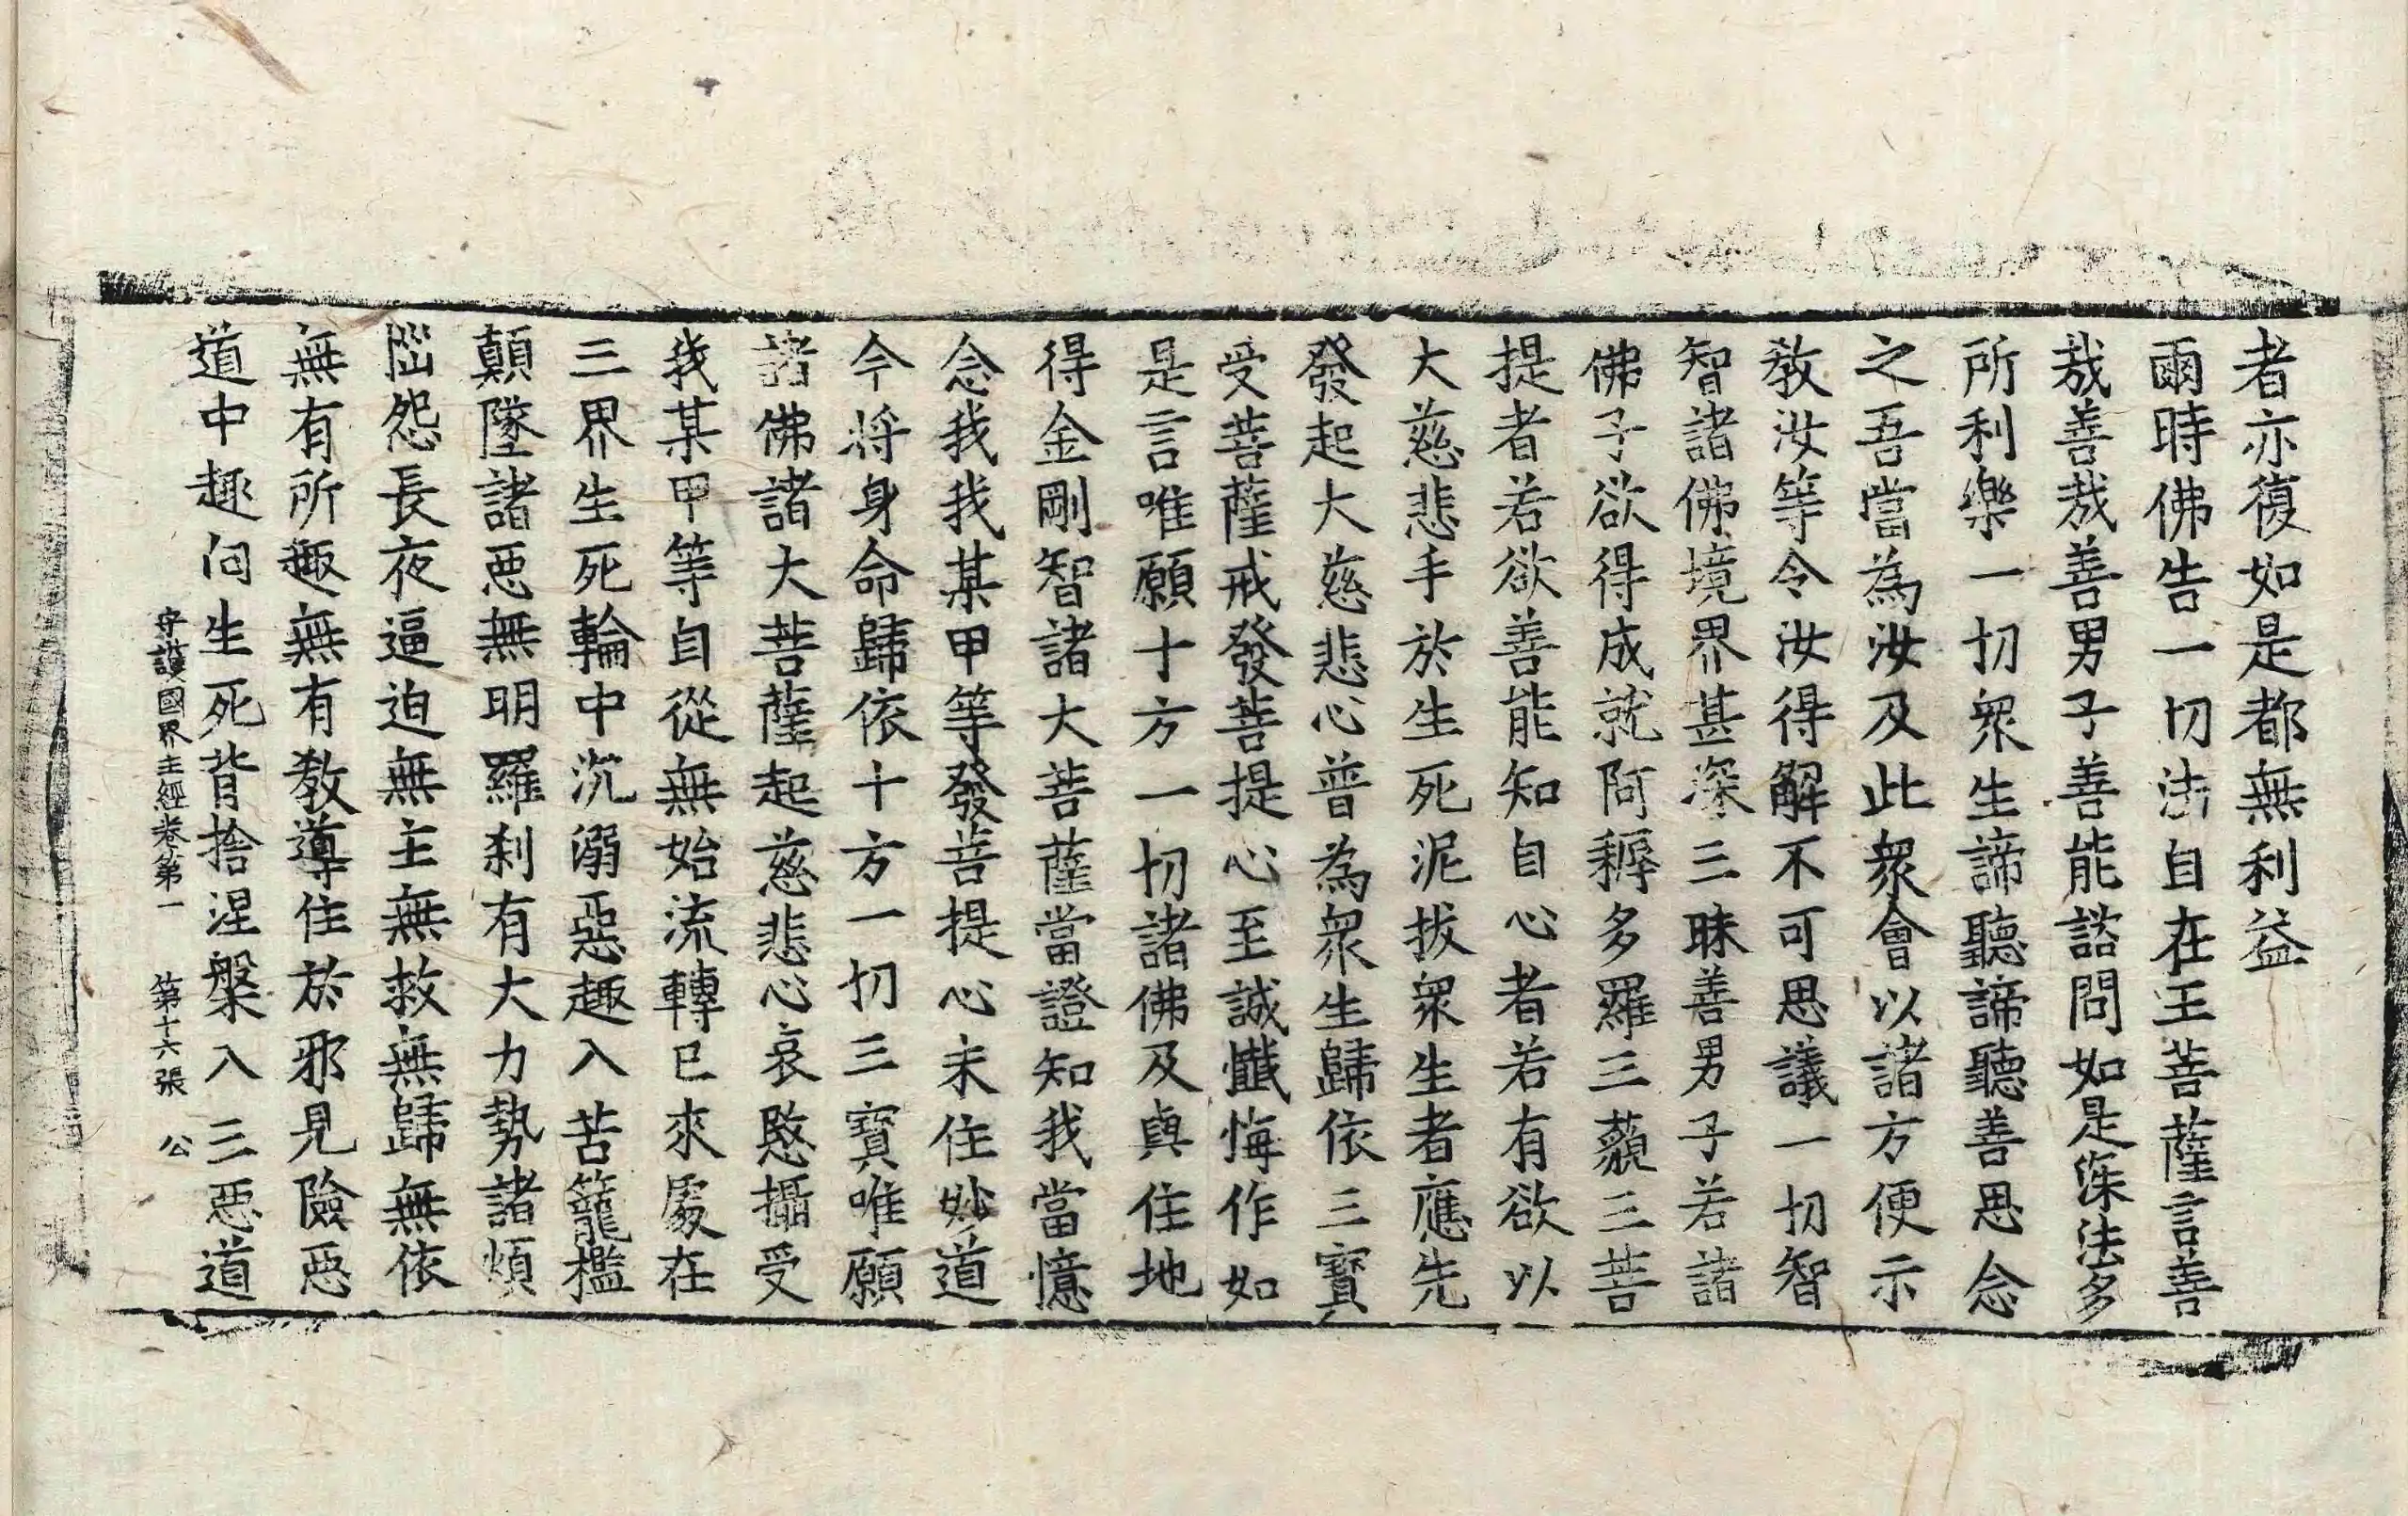 者亦復如是都無利益
爾時佛告一切法自在王菩薩言善
哉善哉善男子善能諮問如是深法多
所利樂一切衆生諦聽諦聽善思念
之吾當為汝及此衆會以諸方便示
教汝等令汝得解不可思議一切智
智諸佛境界甚深三昧善男子若諸
佛子欲得成就阿耨多羅三藐三菩
提者若欲善能知自心者若有欲以
大慈悲手於生死泥拔衆生者應先
發起大慈悲心普為衆生歸依三寶
受菩薩戒發菩提心至誠懺悔作如
是言唯願十方一切諸佛及與住地
得金剛智諸大菩薩當證知我當憶
念我我某甲等發菩提心未住妙道
今将身命歸依十方一切三寶唯願
諸佛諸大菩薩起慈悲心哀愍攝受
我某甲等自從無始流轉已來處在
三界生死輪中沉溺惡趣入苦籠檻
顛墜諸惡無明羅刹有大力勢諸煩
惱怨長夜逼迫無主無救無歸無依
無有所趣無有教導住於邪見險惡
道中趣向生死背捨涅槃入三惡道
守護國界主經卷第一　第十六張　公